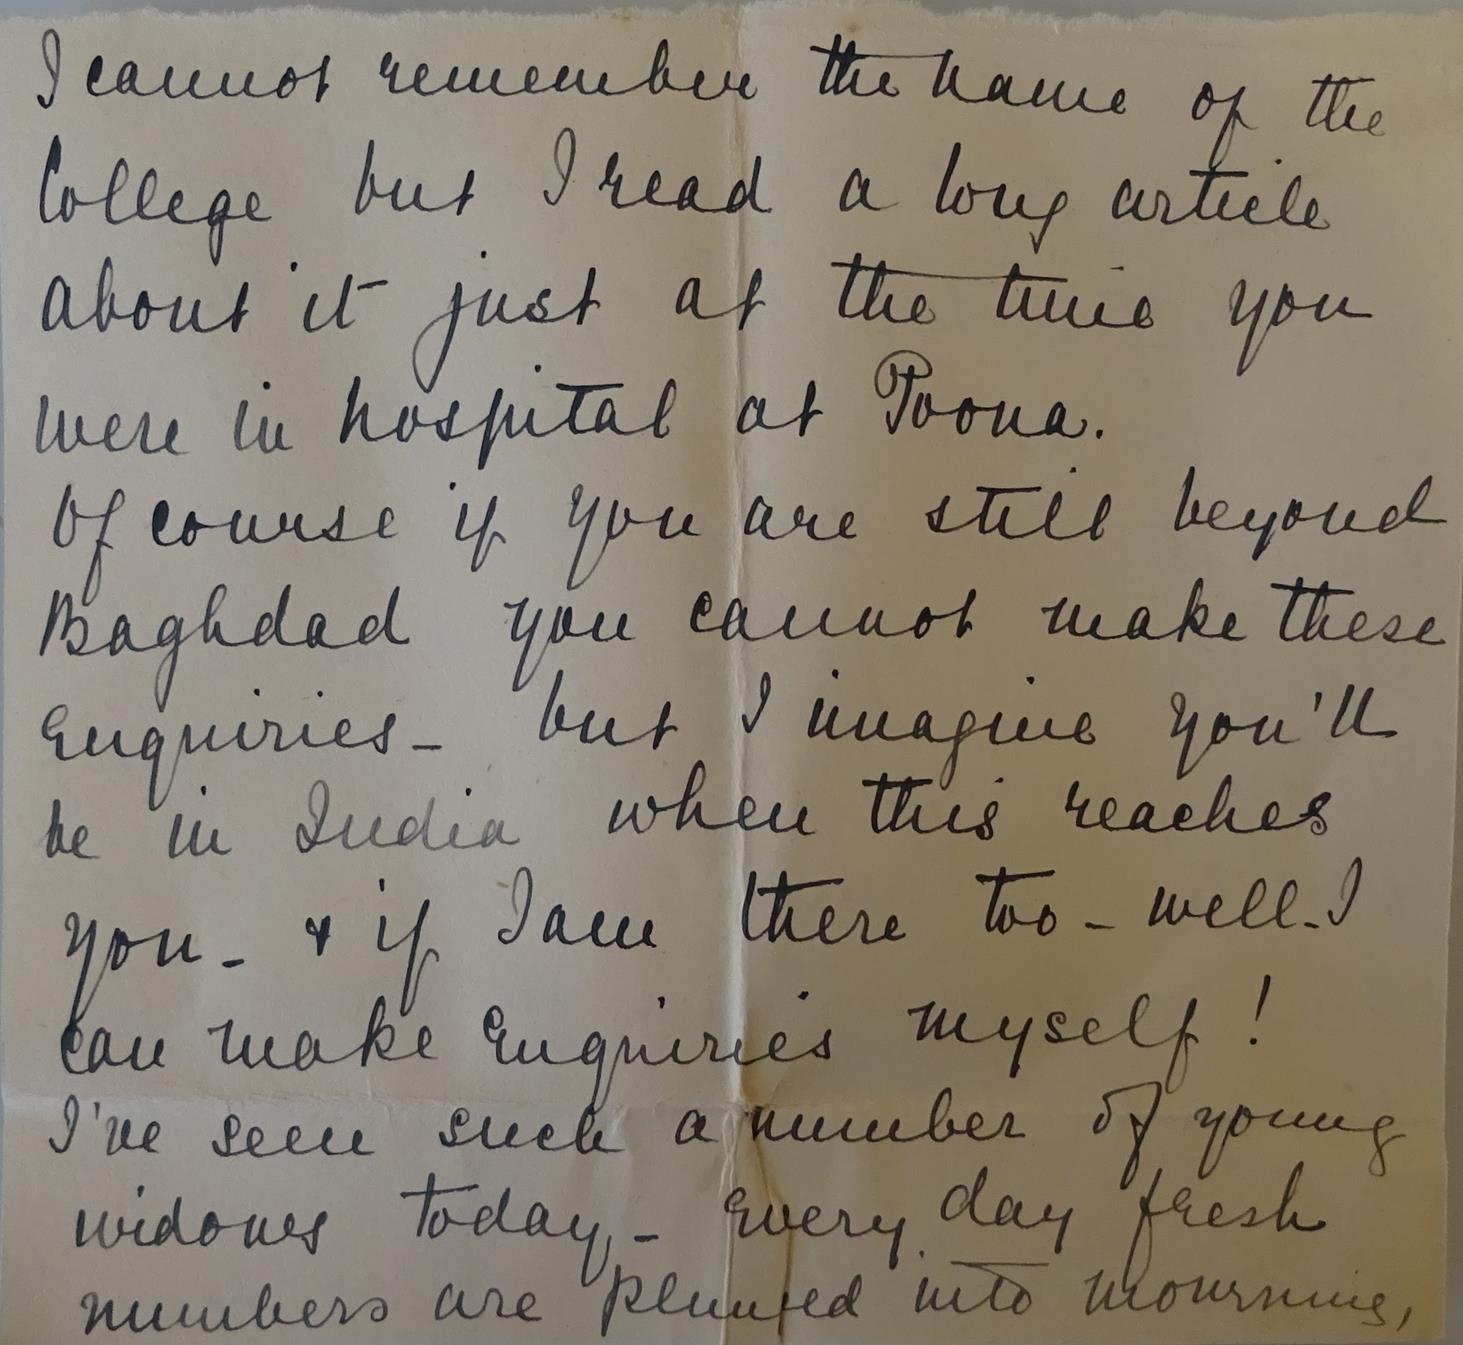 I cannot remember the name of the
College but I read a long article
about it just at the time you
were in hospital at Poona.
Of course if you are still beyond
Baghdad you cannot make these
Enquiries - but I imagine you'll
be in India when this reaches
you - & if I am there too - well - I
can make Enquiries myself!
I've seen such a number of young
widows today - Every day fresh
numbers are plunged into mourning,